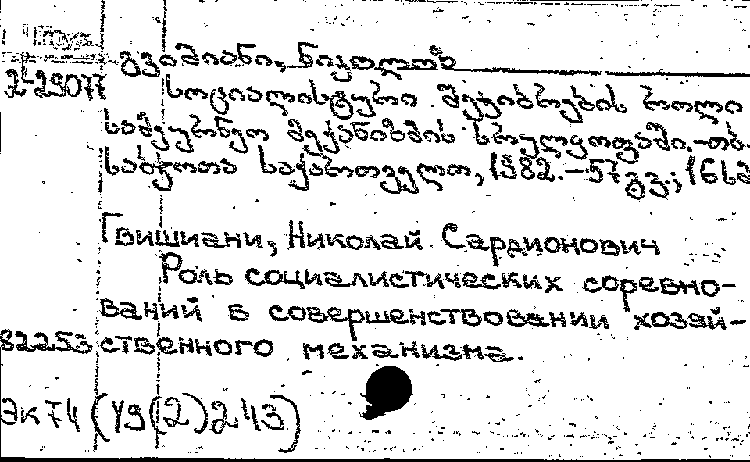 გვიშიანი, ნიკოლოზ
2-29077 სოციალისტური შეჯიბრების როლი
სამეურნეო მექანიზმის სრულყოფაში.-თბ.
საბჭოთა საქართველო, 1982.-57გვ.; 16სმ
Гвишиани, Николай Сардионович
Роль социалистических соревно-
ваний в совершенствовании хозяй-
82253 ственного механизма.
Эк74 (У9(2)243)